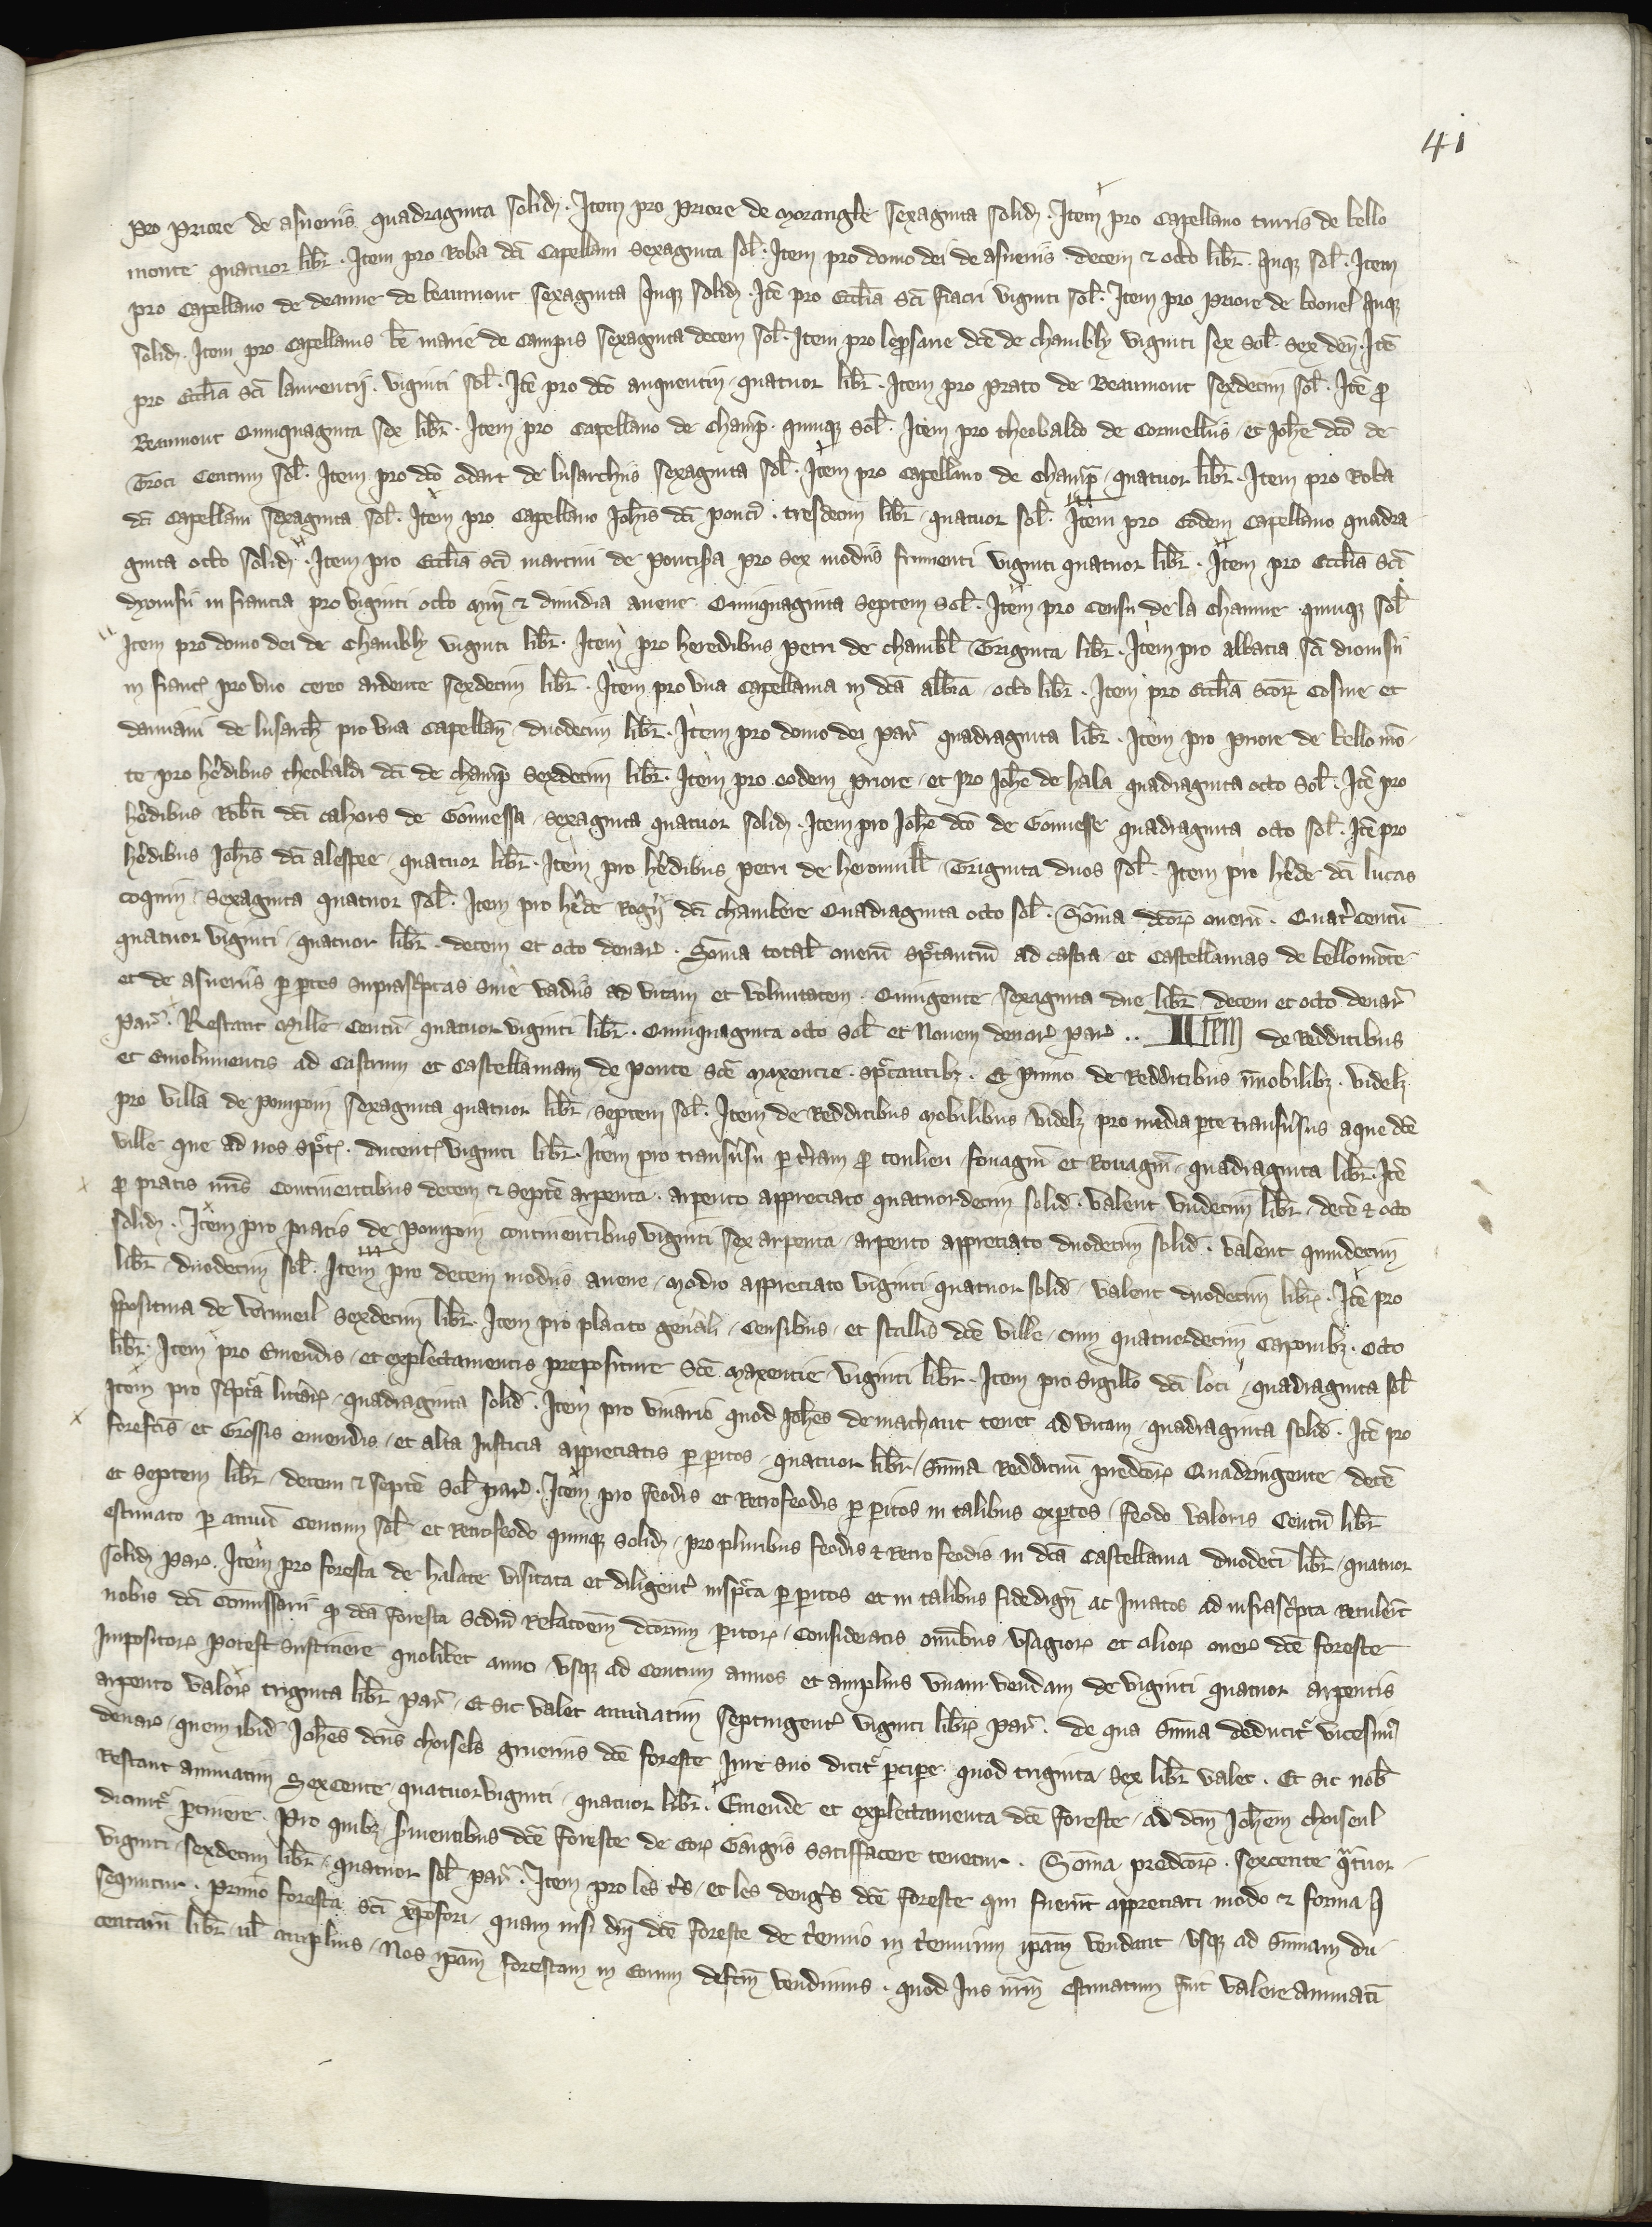 41
pro priore de asneriis quadraginta solid. Item pro priore de morangle sexaginta solid. Item pro Capellano turris de bello
monte quatuor libr̄. Item pro Roba dc̄i Capellani sexaginta sol̄. Item pro domo dei de asneriis decem & octo libr̄. quinqȝ sol̄. Item
pro Capellano de beaumont sexaginta quinqȝ solid. Itē pro Eccl̄ia Sc̄i fiacri viginti sol̄. Item pro priore de boonel quinqȝ
solid. Item pro Capellanis bē marie de Campis sexaginta decem sol̄. Item pro leprosarie dc̄e de chambly viginti sex sol̄. sex den̄. Itē
pro Eccl̄ia Sc̄i laurentii. viginti sol̄. Itē pro dc̄o anquentin quatuor libr̄. Item pro prato de Beaumont sexdecim sol̄. Itē ꝓ
Beaumont Quinquaginta sex libr̄. Item pro Capellano de champ̄. quinqȝ sol̄. Item pro theobaldo de Cormellis et Joh̄e dc̄o de
Groci Centum sol̄. Item pro dc̄o odart de lusarchiis sexaginta sol̄. Item pro Capellano de champ̄ quatuor libr̄. Item pro Roba
dc̄i Capellani sexaginta sol̄. Item pro Capellano Joh̄is dc̄i ponci. tresdecim libr̄ quatuor sol̄. Item pro Eodem Capellano quadra
ginta octo solid. Item pro Eccl̄ia Sc̄i martini de pontisa pro sex modiis frumenti viginti quatuor libr̄. Item pro Eccl̄ia Sc̄i
dyonisii in francia pro viginti octo mi & dimidia avene Quinquaginta septem sol̄. Item pro Censu de la chaume quinqȝ sol̄
Item pro domo dei de Chambly viginti libr̄. Item pro heredibus petri de chambl̄ Triginta libr̄. Item pro abbacia Sc̄i dionisii
in franc̄ pro uno cereo ardente sexdecim libr̄. Item pro una Capellania in dc̄a abb̄ia octo libr̄. Item pro Eccl̄ia Sc̄orꝝ Cosme et
damiani de lusarch̄ pro una Capellan̄ duodecim libr̄. Item pro domo dei par̄ quadraginta libr̄. Item pro priore de bello mō
te pro h̄edibus theobaldi dc̄i de champ̄ sexdecim libr̄. Item pro eodem priore et pro Joh̄e de hala quadraginta octo sol̄. Itē pro
h̄edibus Rob̄ti dc̄i cahors de Gonnessa sexaginta quatuor solid. Item pro Joh̄e dc̄o de Gonnesse quadraginta octo sol̄. Itē pro
h̄edibus Joh̄is dc̄i alespee quatuor libr̄. Item pro h̄edibus petri de heronvill̄ Triginta duos sol̄. Item pro h̄ede dc̄i lucas
coquin sexaginta quatuor sol̄. Item pro h̄ede Roḡi dc̄i chambere Quadraginta octo sol̄. Som̄a dc̄orꝝ onerū. Quat̄ centū
quatuor viginti quatuor libr̄. decem et octo denar̄. Som̄a total̄ onerū sp̄tantiū ad castra et Castellanias de bellomōte
et de asneriis ꝑ ꝑtes suprascͥptas sine vadiis ad vitam et voluntatem. Quingente sexaginta due libr̄ decem et octo denar̄
par̄. Restant Mille Centū quatuor viginti libr̄. Quinquaginta octo sol̄ et Novem denar̄ par̄ .. IItem de Redditibus
et emolumentis ad Castrum et Castellaniam de ponte Sc̄e Maxencie sp̄tantibȝ. Et primo de Redditibus īmobilibȝ. videlȝ.
pro villa de pompoin sexaginta quatuor libr̄ septem sol̄. Item de Redditibus mobilibus videlȝ pro media ꝑte transv̄sus aque dc̄e
ville que ad nos sp̄t. ducent̄ viginti libr̄. Item pro transv̄su ꝑ t̄ram ꝓ tonlieu fouagiū et Rouagiū quadraginta libr̄. Itē
ꝓ pratis nr̄is Continentibus decem & septē arpenta. arpento appreciato quatuordecim solid. valent undecim libr̄ decē & octo
solid. Item pro pratis de pompoin continentibus viginti sex arpenta arpento appreciato duodecim solid. valent quindecim
libr̄ duodecim sol̄. Item pro decem modiis avene modio appreciato viginti quatuor solid valent duodecim libr̄. Itē pro
p̄positura de verinueil sexdecim libr̄. Item pro placito gen̄ali Censibus et stallis dc̄e ville cum quatuordecim Caponibȝ. octo
libr̄. Item pro Emendis et explectamentis prepositure Sc̄e Maxencie viginti libr̄. Item pro Sigillo dc̄i loci quadraginta sol̄
Item pro scͥptͣa litterarꝝ quadraginta solid. Item pro vivario quod Joh̄es de machaut tenet ad vitam quadraginta solid. Itē pro
forefcis et Grossis emendis et alta Justicia appreciatis ꝑ ꝑitos quatuor libr̄ Sum̄a Reddituū predc̄orꝝ Quadringente decē
et septem libr̄ decem & septē sol̄ par̄. Item pro feodis et Retrofeodis ꝑ ꝑitos in talibus exꝑtos feodo valoris Centū libr̄
estimato ꝑ annū Centum sol̄ et Retrofeodo quinqȝ solid pro pluribus feodis & retro feodis in dc̄a Castellania duodeci libr̄ quatuor
solid par̄. Item pro foresta de halate visitata et diligent̄ inspc̄ta ꝑ ꝑitos et in talibus fidedign̄ ac Juratos ad infrascͥpta Retuler̄t
nobis dc̄i Com̄issarii ꝙ dc̄a foresta Scd̄m Relacoēm dc̄orum ꝑitorꝝ Consideratis om̄ibus usagiorꝝ et aliorꝝ onerꝝ dc̄e foreste
Impositorꝝ potest sustinere quolibet anno usqȝ ad Centum annos et amplius unam vendam de viginti quatuor arpentis
arpento valorꝝ triginta libr̄ par̄. Et sic valet annuatim septingent̄ viginti libr̄ par̄. de qua sum̄a deducit̄ vicesim̄
denar̄ quem ibid Joh̄es dc̄us choisels gruerius dc̄e foreste Jure suo dicit̄ ꝑciꝑe quod triginta sex libr̄ valet. Et sic nob̄
Restant annuatim Sexcente quatuorviginti quatuor libr̄. Emende et explectamenta dc̄e foreste ad dc̄m Joh̄em choiseul
dicunt̄ ꝑtinere. Pro quibȝ s̄vientibus dc̄e foreste de Eorꝝ Gagiis satisffacere tenetur. Som̄a predc̄orꝝ. sexcente qͣtuor
viginti sexdecim libr̄ quatuor sol̄ par̄. Item pro les t̄s et les denḡs dc̄e foreste qui fuer̄t appreciati modo & forma q̄
sequntur. Primo foresta Sc̄i xp̄ofori quam nisi dn̄i dc̄e foreste de t̄ennio in t̄ennium ip̄am vendant usqȝ ad sum̄am du
centarū libr̄ ul̄ amplius Nos ip̄am forestam in Eorum defc̄m vendimus. quod Jus nr̄m estimatum fuit valere annuatī